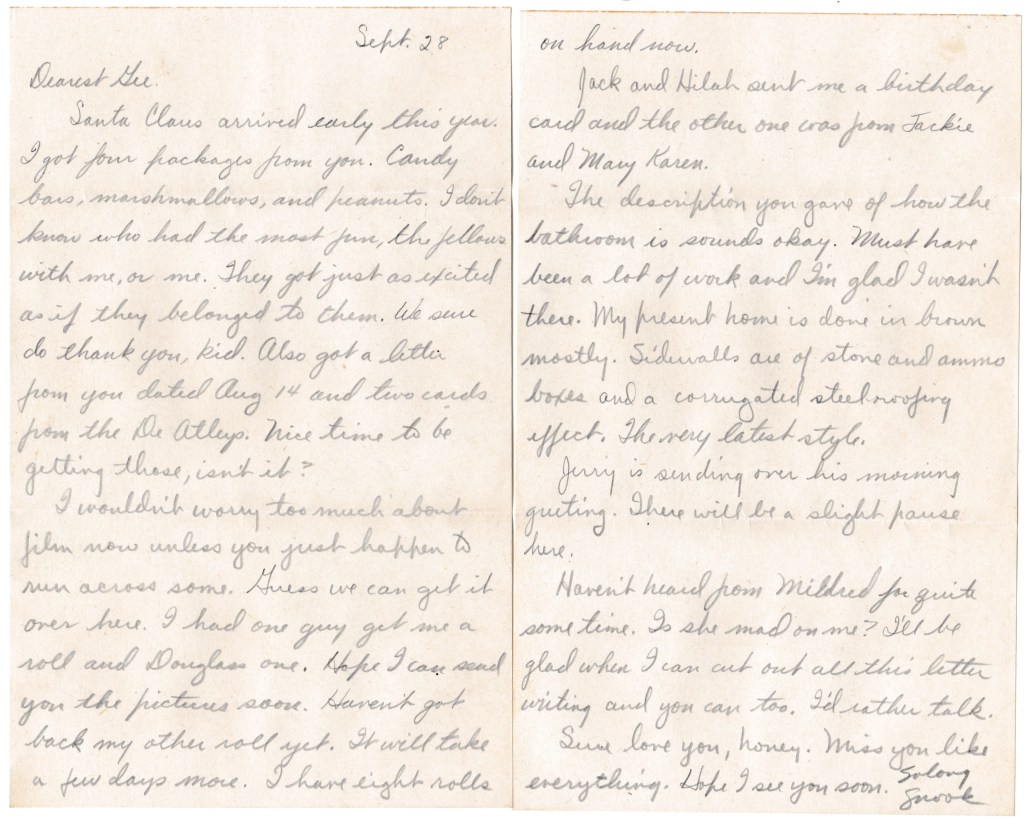 Sept. 28
Dearest Gee.
Santa Claus arrived early this year.
I got four packages from you. Candy
bars, marshmallows, and peanuts. I don't
know who had the most fun, the fellows
with me, or me. They got just as excited
as if they belonged to them. We sure
do thank you, kid. Also got a letter
from you dated Aug 14 and two cards
from the De Atleys. Nice time to be
getting those, isn't it?
I wouldn't worry too much about
film now unless you just happen to
run across some. Guess we can get it
over here. I had one guy get me a
roll and Douglass one. Hope I can send
you the pictures soon. Haven't got
back my other roll yet. It will take
a few days more. I have eight rolls
on hand now.
Jack and Hilah sent me a birthday
card and the other one was from Jackie
and Mary Karen.
The description you gave of how the
bathroom is sounds okay. Must have
been a lot of work and I'm glad I wasn't
there. My present home is done in brown
mostly. Sidewalls are of stone and ammo
boxes and a corrugated steel roofing
effect. The very latest style.
Jerry is sending over his morning
greeting. There will be a slight pause
here.
Haven't heard from Mildred for quite
some time. Is she mad on me? I'll be
glad when I can cut out all this letter
writing and you can too. I'd rather talk.
Sure love you, honey. Miss you like
everything. Hope I see you soon. So long
Snook